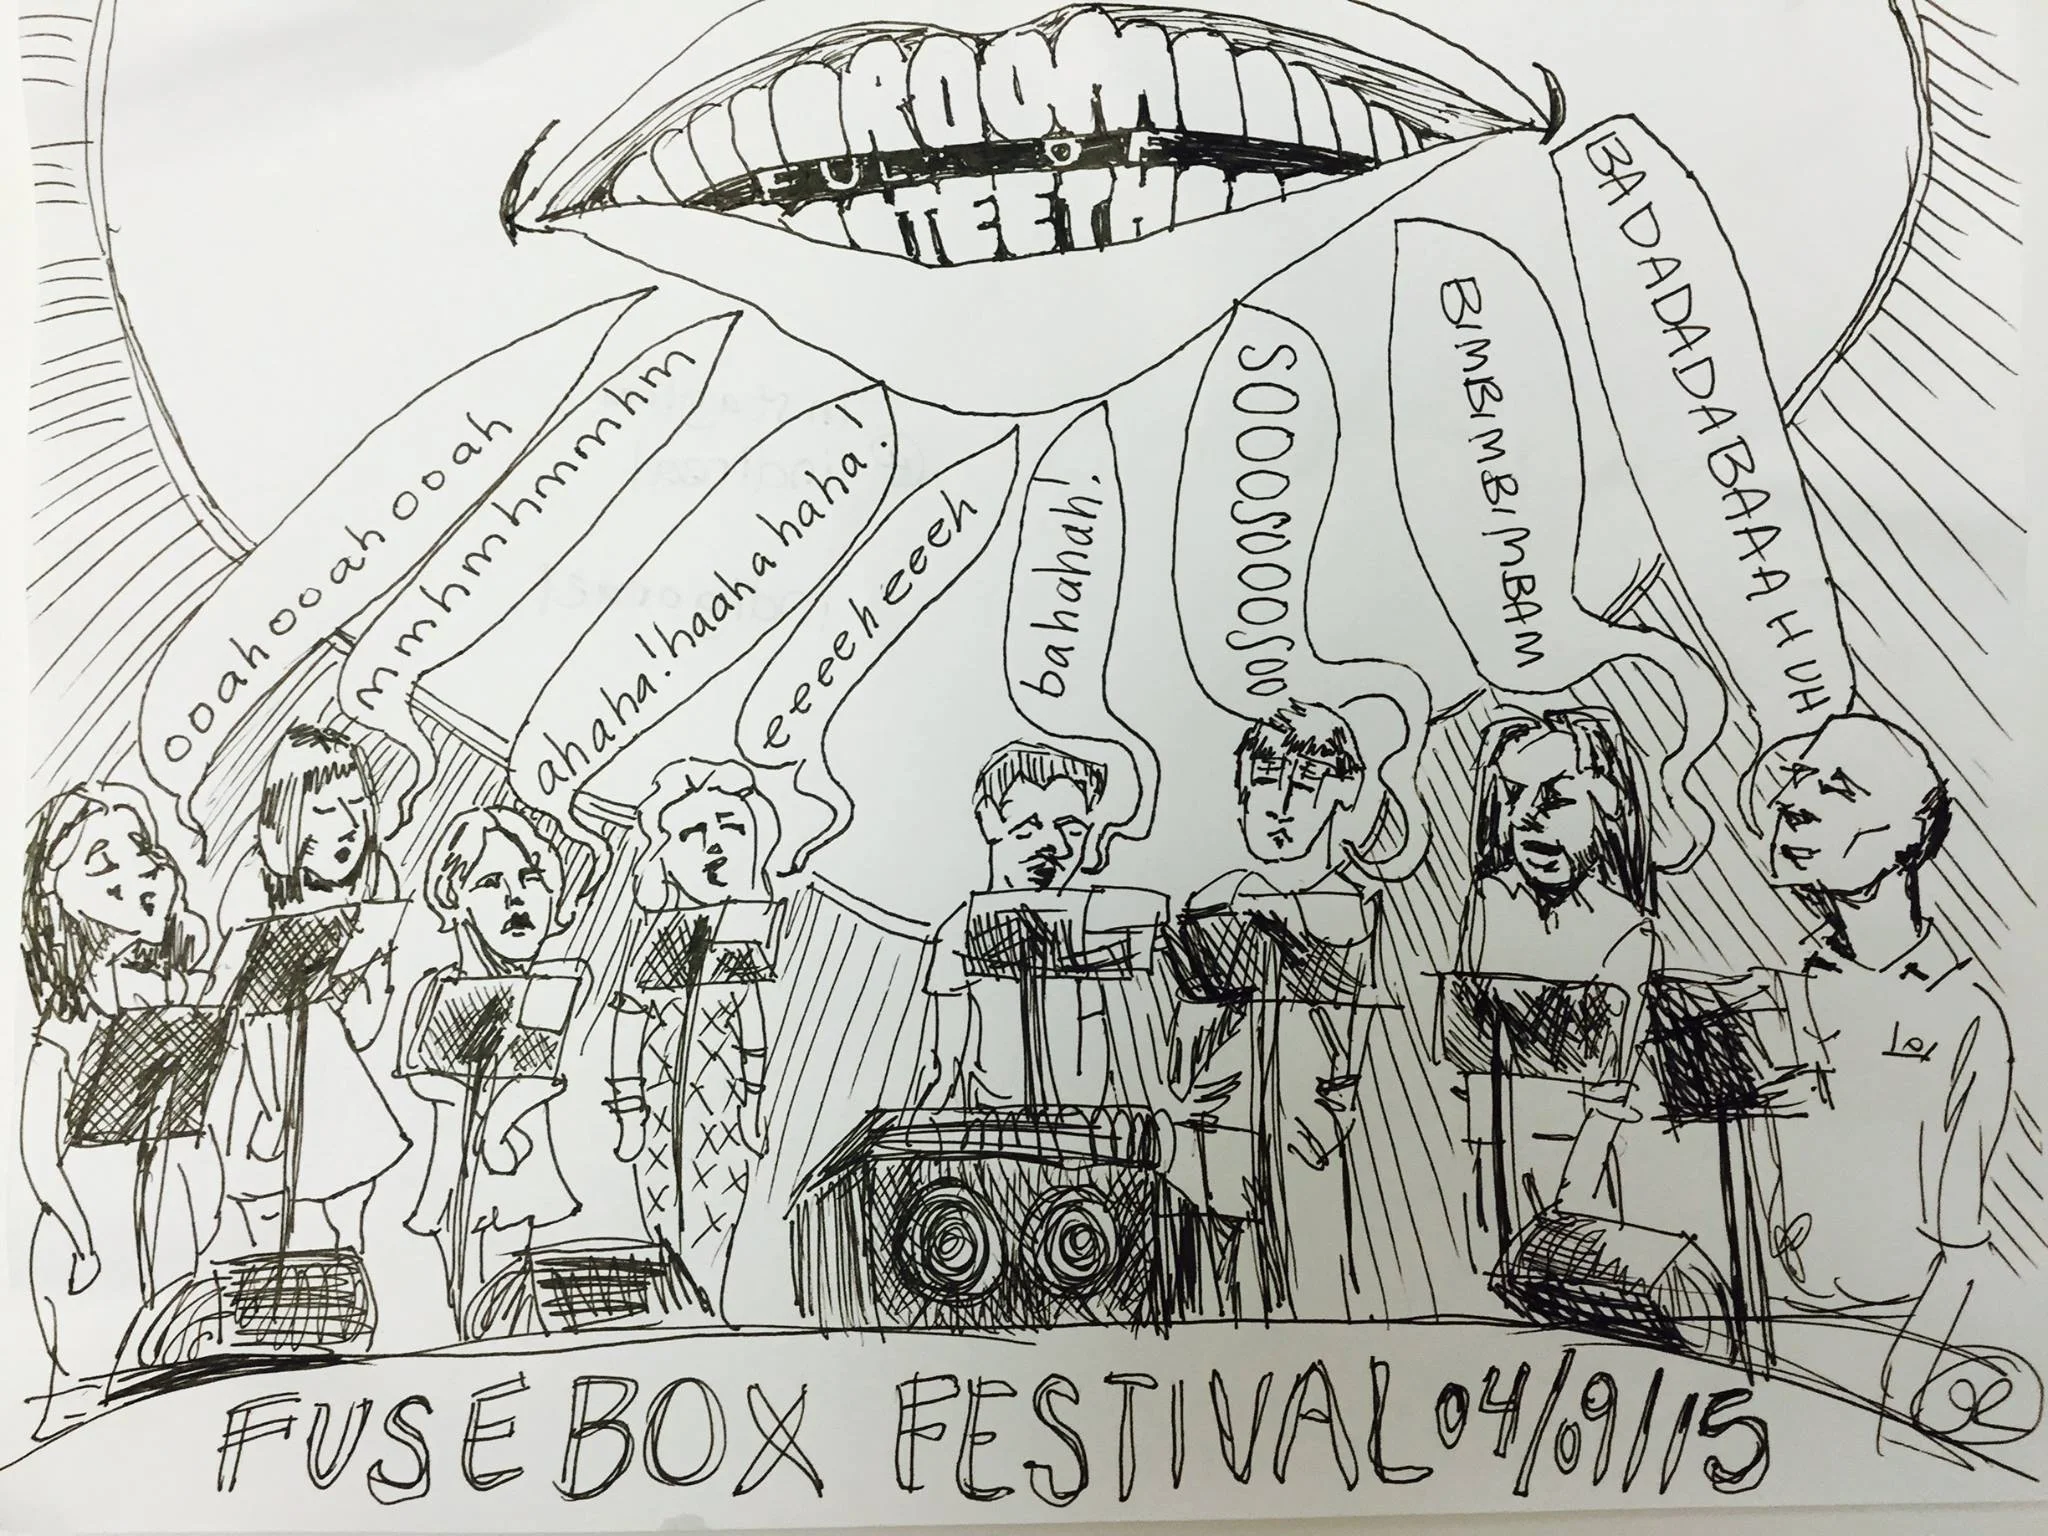 ROOM
FULL OF
TEETH
ooahoooahoooah
mmhmhmmmhm
ahaha!haahahaha!
eeeeheeeeh
bahahah!
SOOOOSOOOOSOO
BIMBIMBIMBAM
BADADADADABAAAHUH
FUSEBOX FESTIVAL 04/09/15